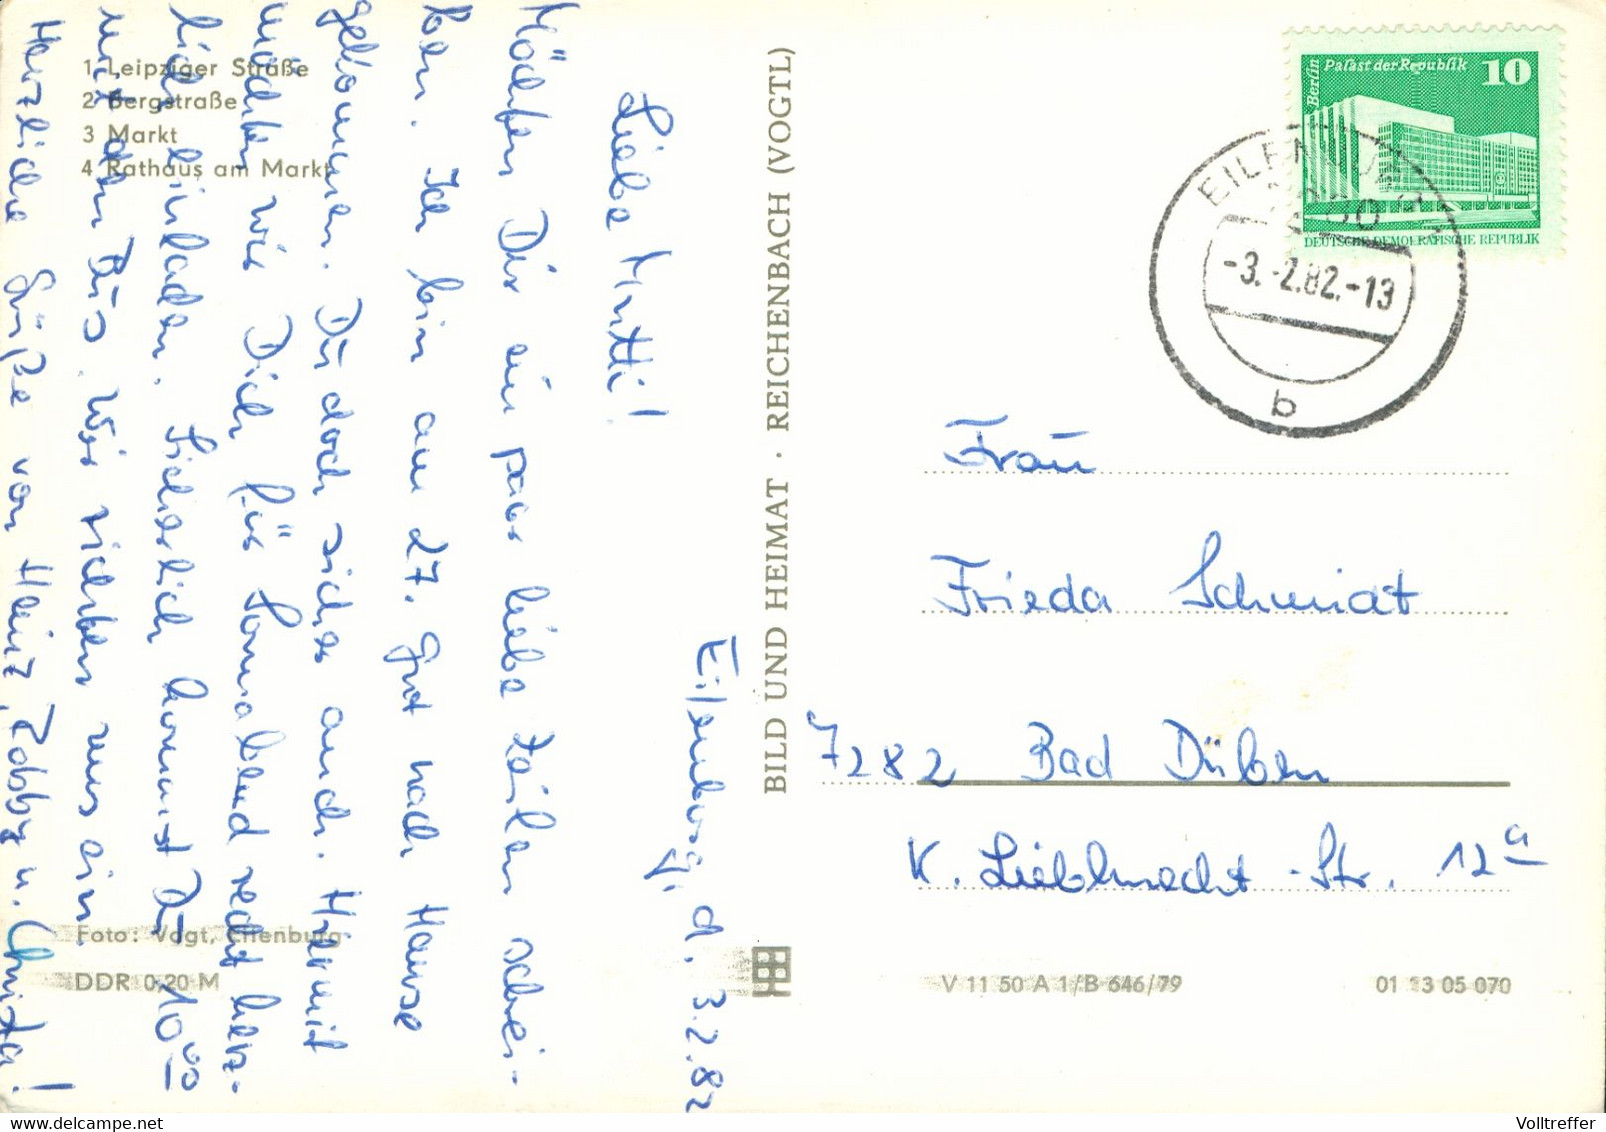 1 Leipziger Straße
2 Bergstraße
3 Markt
4 Rathaus am Markt
Eilenburg, d. 3.2.82
Liebe Mutti!
Möchten Dir ein paar liebe Zeilen schrei-
ben. Ich bin am 27. gut nach Hause
gekommen. Du doch sicher auch. Hiermit
möchten wir Dich für Sonnabend recht herz-
lich einladen. Sicherlich kommst Du 10 00
mit dem Bus. Wir richten uns ein.
Herzliche Grüße von Heinz, Robby u. Christa!
Foto: Vogt, Eilenburg
DDR 0,20 M
BILD UND HEIMAT · REICHENBACH (VOGTL)
Berlin
Palast der Republik
10
DEUTSCHE DEMOKRATISCHE REPUBLIK
EILENBURG
-3.-2.82.-13
b
Frau
Frieda Schmidt
7282 Bad Düben
K. Liebknecht-Str. 12a
V 11 50 A 1/B 646/79
01 13 05 070
Volltreffer